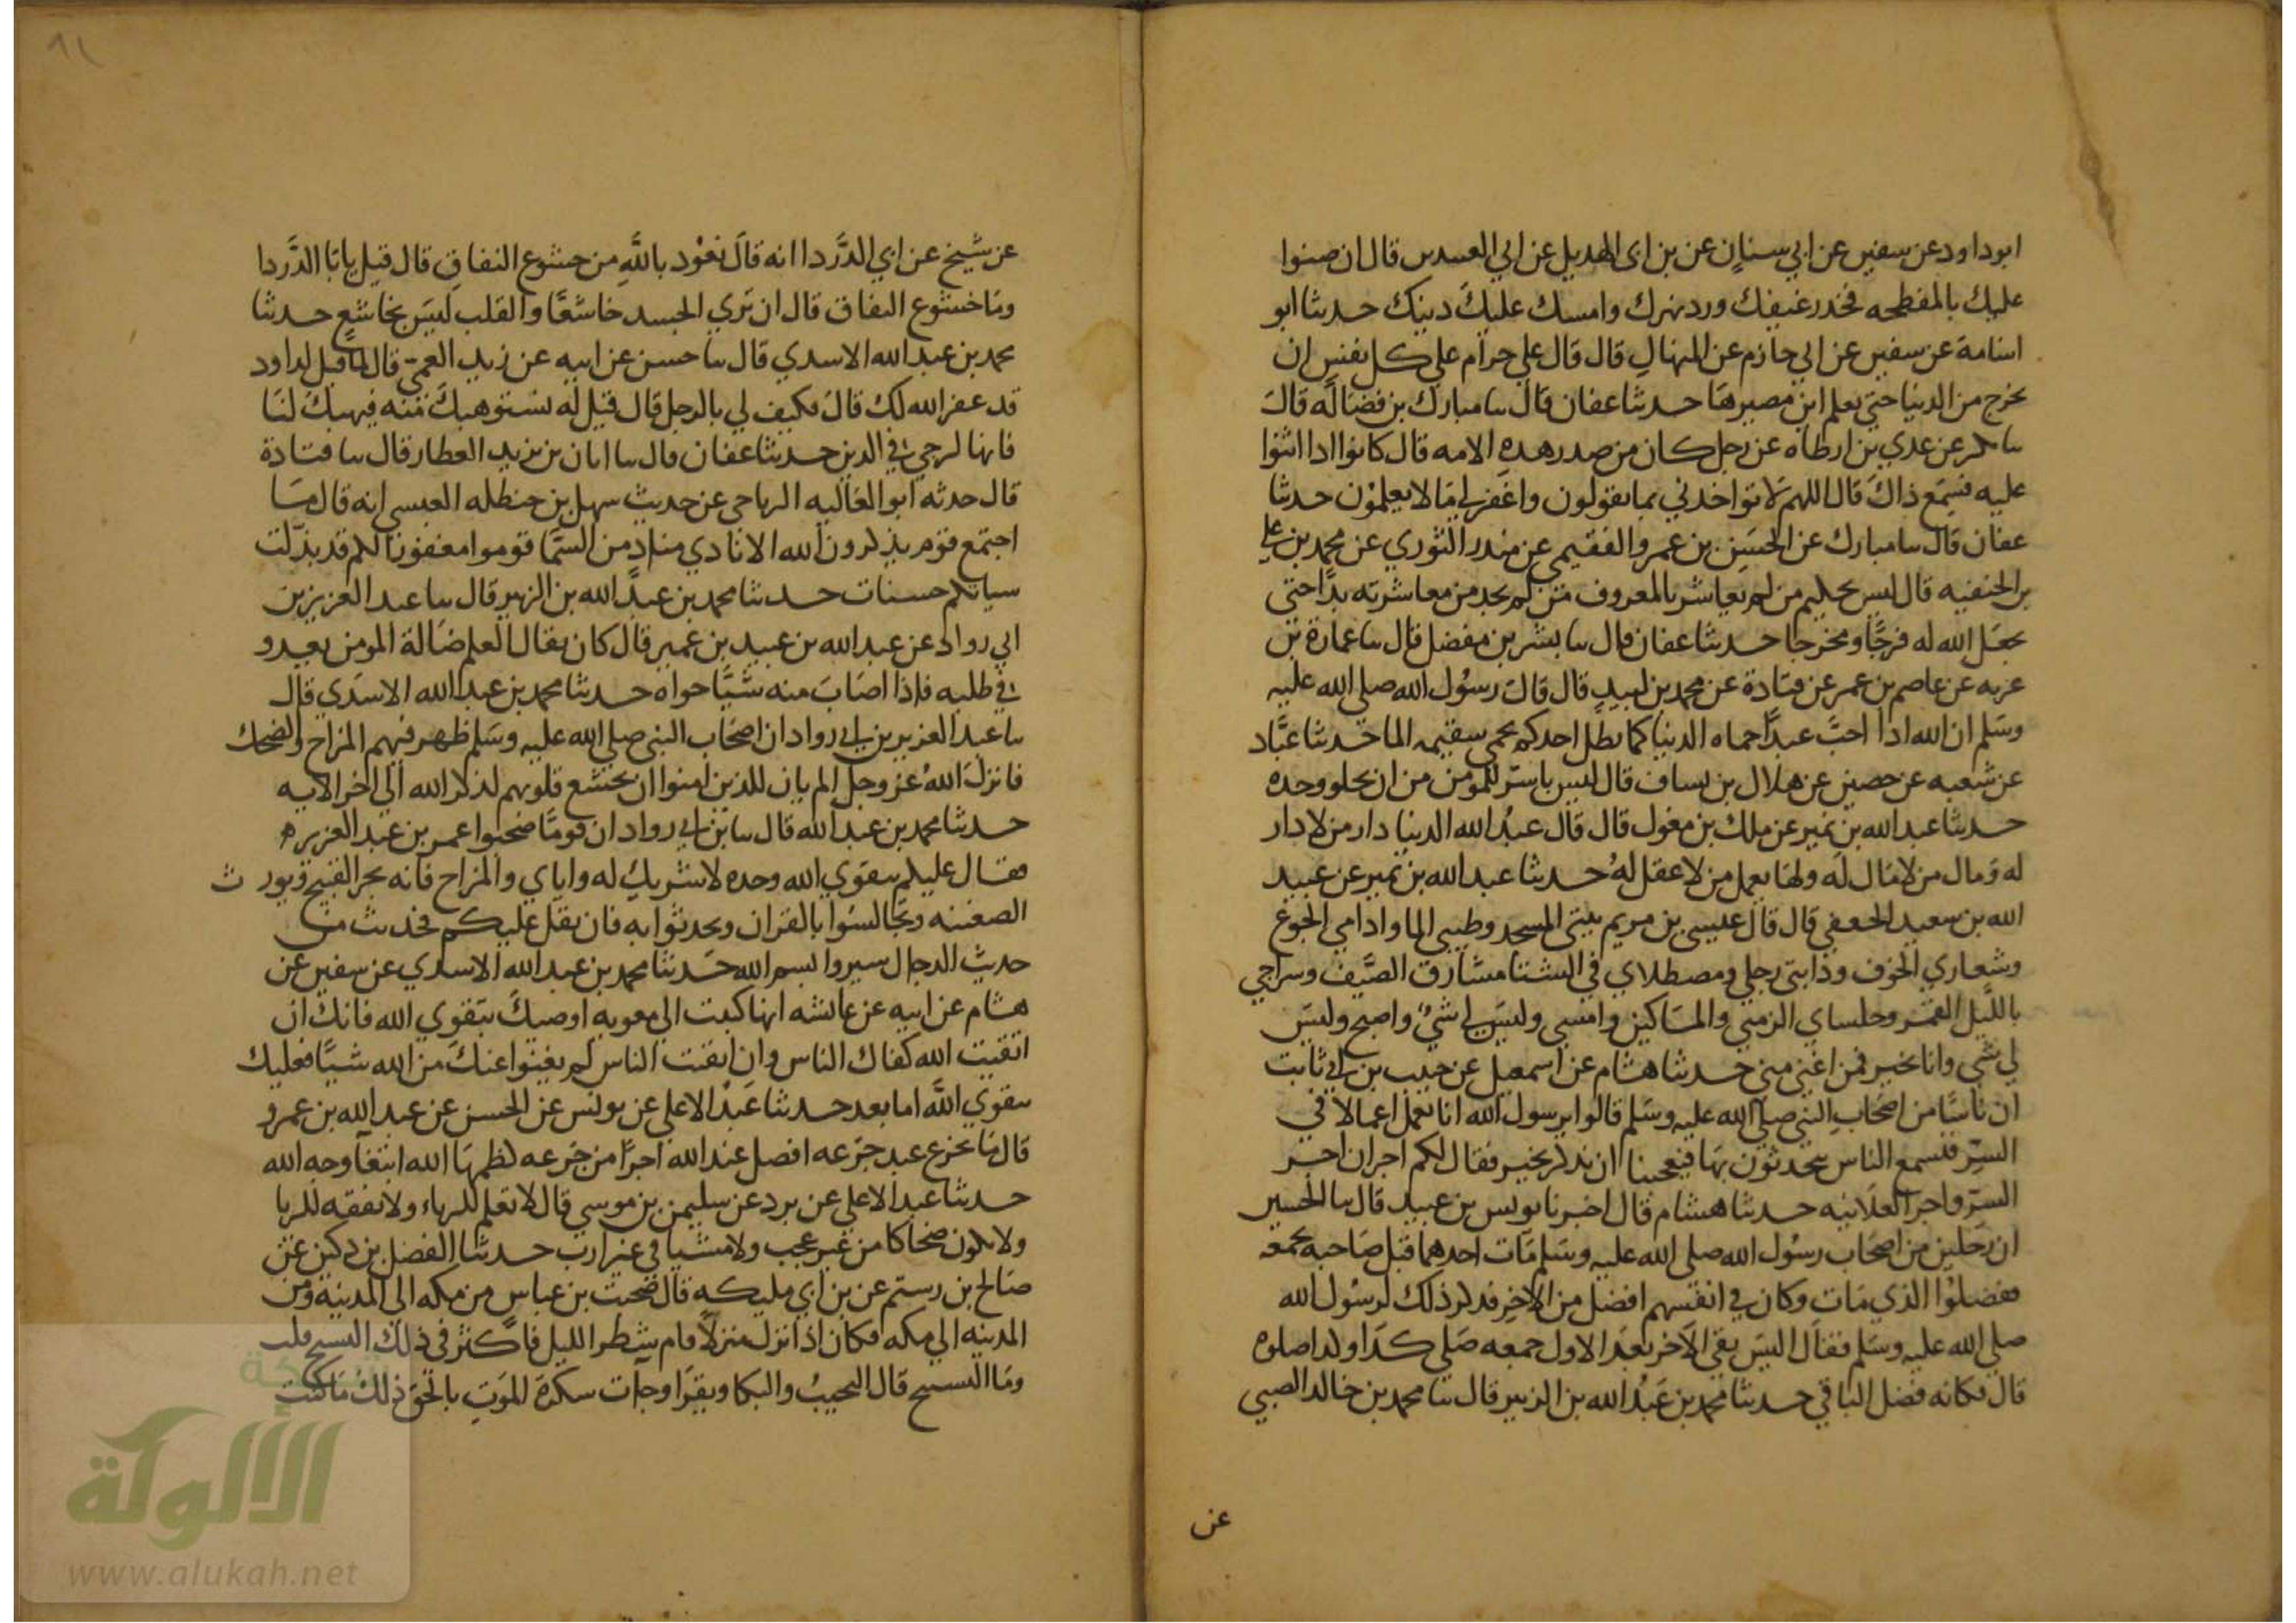 ابوداود عن سفين عن ابي سنان عن بن ابي الهديل عن ابي العبيدين قال ان ضنوا
عليك بالمفطحه فخد رغيفك ورد نهرك وامسك عليك دينك حدثنا ابو
اسامة عن سفين عن ابي حازم عن المنهال قال قال علي حرام علي كل نفس ان
تخرج من الدنيا حتي تعلم اين مصيرها حدثنا عفان قال سا مبارك بن فضاله قال
سا بكر عن عدي بن ارطاه عن رجل كان من صدر هده الامه قال كانوا ادا اثنوا
عليه فسمع ذاك قال اللهم لا تواخدني بما يقولون واغفر لي ما لا يعلمون حدثنا
عفان قال سا مبارك عن الحسن بن عمرو الفقيمي عن مندر الثوري عن محمد بن علي
بن الحنفيه قال ليس بحليم من لم يعاشر بالمعروف من لم يجد من معاشرته بدا حتي
يجعل الله له فرجا ومخرجا حدثنا عفان قال سا بشر بن مفضل قال سا عمارة بن
عزيه عن عاصم بن عمر عن قتادة عن محمد بن لبيد قال قال رسول الله صلي الله عليه
وسلم ان الله ادا احب عبدا حماه الدنيا كما يظل احدكم يحمي سقيمه الما حدثنا عباد
عن شعبه عن حصين عن هلال بن يساف قال ليس باسر للمومن من ان يخلو وحده
حدثنا عبد الله بن نمير عن ملك بن مغول قال قال عبد الله الدنيا دار من لا دار
له ومال من لا مال له ولها يعمل من لا عقل له حدثنا عبد الله بن نمير عن عبيد
الله بن سعيد الجعفي قال قال عيسي بن مريم بيتي المسجد وطيبي الما وادامي الجوع
وشعاري الخوف ودابتي رجلي ومصطلاي في الشتا مشارق الصيف وسراجي
بالليل القمر وجلساي الزمني والمساكين وامسي وليس لي شي واصبح وليس
لي شي وانا بخير فمن اغني مني حدثنا هشام عن اسمعيل عن حبيب بن ابي ثابت
ان ناسا من اصحاب النبي صلي الله عليه وسلم قالوا يرسول الله انا نعمل اعمالا في
السر فنسمع الناس يتحدثون بها فيعجبنا ان نذكر بخير فقال لكم اجران اجر
السر واجر العلانيه حدثنا هشام قال اخبرنا يونس بن عبيد قال سا الحسن
ان رجلين من اصحاب رسول الله صلي الله عليه وسلم مات احدهما قبل صاحبه بجمعه
ففضلوا الذي مات وكان في انفسهم افضل من الاخر فدكر ذلك لرسول الله
صلي الله عليه وسلم فقال اليس بقي الاخر بعد الاول جمعه صلي كدا وكدا صلوه
قال فكانه فضل الباقي حدثنا محمد بن عبد الله بن الزبير قال سا محمد بن خالد الضبي
عن
عن شيخ عن ابي الدردا انه قال نعود بالله من خشوع النفاق قال قيل يابا الدردا
وما خشوع النفاق قال ان تري الجسد خاشعا والقلب ليس بخاشع حدثنا
محمد بن عبد الله الاسدي قال سا حسن عن ابيه عن زيد العمي قال لما قيل لداود
قد غفر الله لك قال فكيف لي بالرجل قال قيل له نستوهبك منه فيهبك لنا
فانها لرجي في الدين حدثنا عفان قال سا ابان بن يزيد العطار قال سا قتادة
قال حدثه ابو العاليه الرياحي عن حديث سهل بن حنظله العبسي انه قال ما
اجتمع قوم يذكرون الله الا نادي مناد من السما قوموا مغفورا لكم قد بدلت
سياتكم حسنات حدثنا محمد بن عبد الله بن الزبير قال سا عبد العزيز بن
ابي رواد عن عبد الله بن عبيد بن عمير قال كان يقال العلم ضالة المومن يغدو
في طلبه فاذا اصاب منه شيا حواه حدثنا محمد بن عبد الله الاسدي قال
سا عبد العزيز بن ابي رواد ان اصحاب النبي صلي الله عليه وسلم ظهر فيهم المزاح والضحك
فانزل الله عز وجل الم يان للذين امنوا ان تخشع قلوبهم لذكر الله الي اخر الايه
حدثنا محمد بن عبد الله قال سا بن ابي رواد ان قوما صحبوا عمر بن عبد العزيز ه
فقال عليكم بتقوي الله وحده لا شريك له واياي والمزاح فانه يجر القبيح ويورث
الضغينه وتجالسوا بالقران وتحدثوا به فان ثقل عليكم فحديث من
حديث الرجال سيروا بسم الله حدثنا محمد بن عبد الله الاسدي عن سفين عن
هشام عن ابيه عن عائشه انها كتبت الي معويه اوصيك بتقوي الله فانك ان
اتقيت الله كفاك الناس وان اتقيت الناس لم يغنوا عنك من الله شيا فعليك
بتقوي الله اما بعد حدثنا عبد الاعلي عن يونس عن الحسن عن عبد الله بن عمرو
قال ما تجرع عبد جرعه افضل عند الله اجرا من جرعه كظمها لله ابتغا وجه الله
حدثنا عبد الاعلي عن برد عن سليمن بن موسي قال لا تعلم للرياء ولا تفقه للريا
ولا تكون ضحاكا من غير عجب ولا مشيا في غير ارب حدثنا الفضل بن دكين عن
صالح بن رستم عن بن ابي مليكه قال صحبت بن عباس من مكه الي المدينه ومن
المدينه الي مكه فكان اذا نزل منزلا قام شطر الليل فاكثر في ذلك النسيج قلت
وما النسيج قال النحيب والبكا ويقرا وجات سكرة الموت بالحق ذلك ما كنت
الألوكة
www.alukah.net